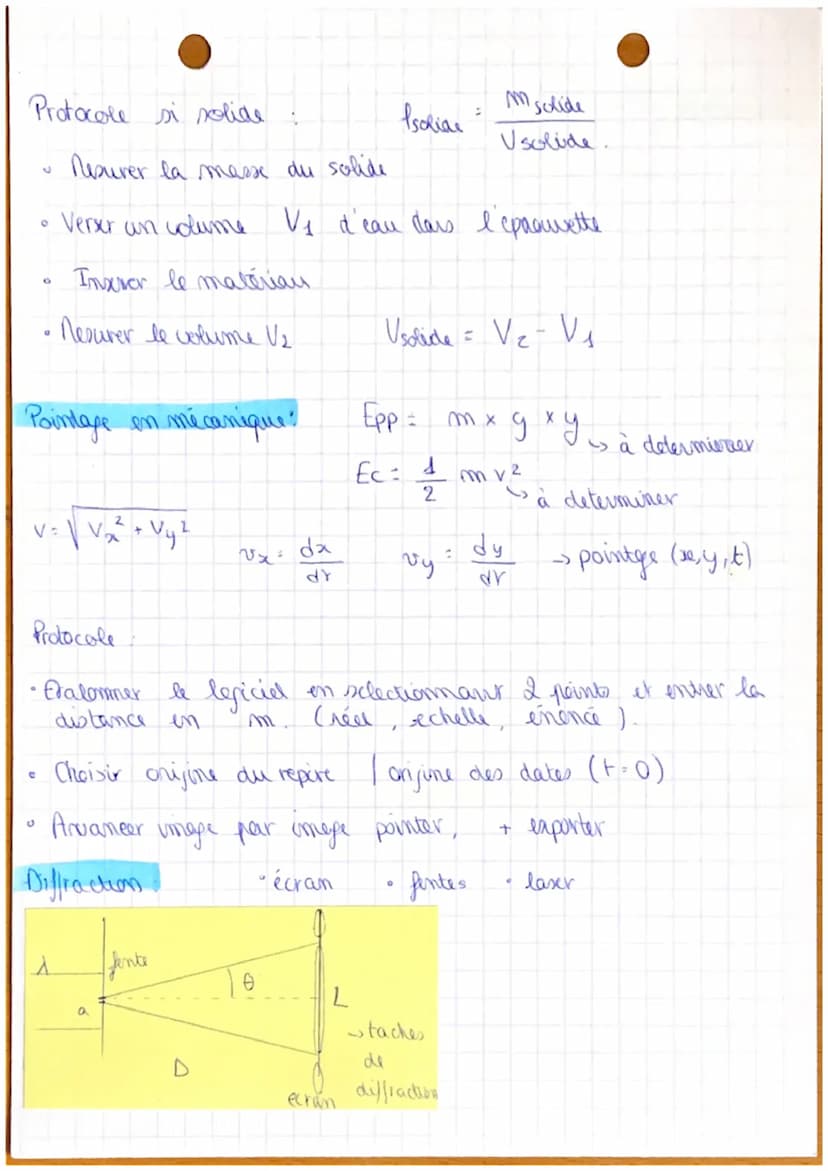 Protocole si solide : ρsolide = m solide / V solide.
Mesurer la masse du solide
• Verser un volume V1 d'eau dans l'éprouvette
• Insérer le matériau
• Mesurer le volume V2 Vsolide = V2 - V1
Pointage en mécanique: Epp = m × g × y ↳ à determiner
Ec = 1/2 m v² ↳ à determiner
v = √(Vx² + Vy²)
vx = dx/dt vy = dy/dt → pointge (x, y, t)
Protocole :
• Etalonner le logiciel en sélectionnant 2 points et entrer la
distance en m. (réel, echelle, énoncé).
• Choisir origine du repère / origine des dates (t=0)
• Avancer image par image pointer, + exporter
Diffraction: • écran • fentes • laser
λ fente
θ
a L
→ taches
de
diffraction
D
écran